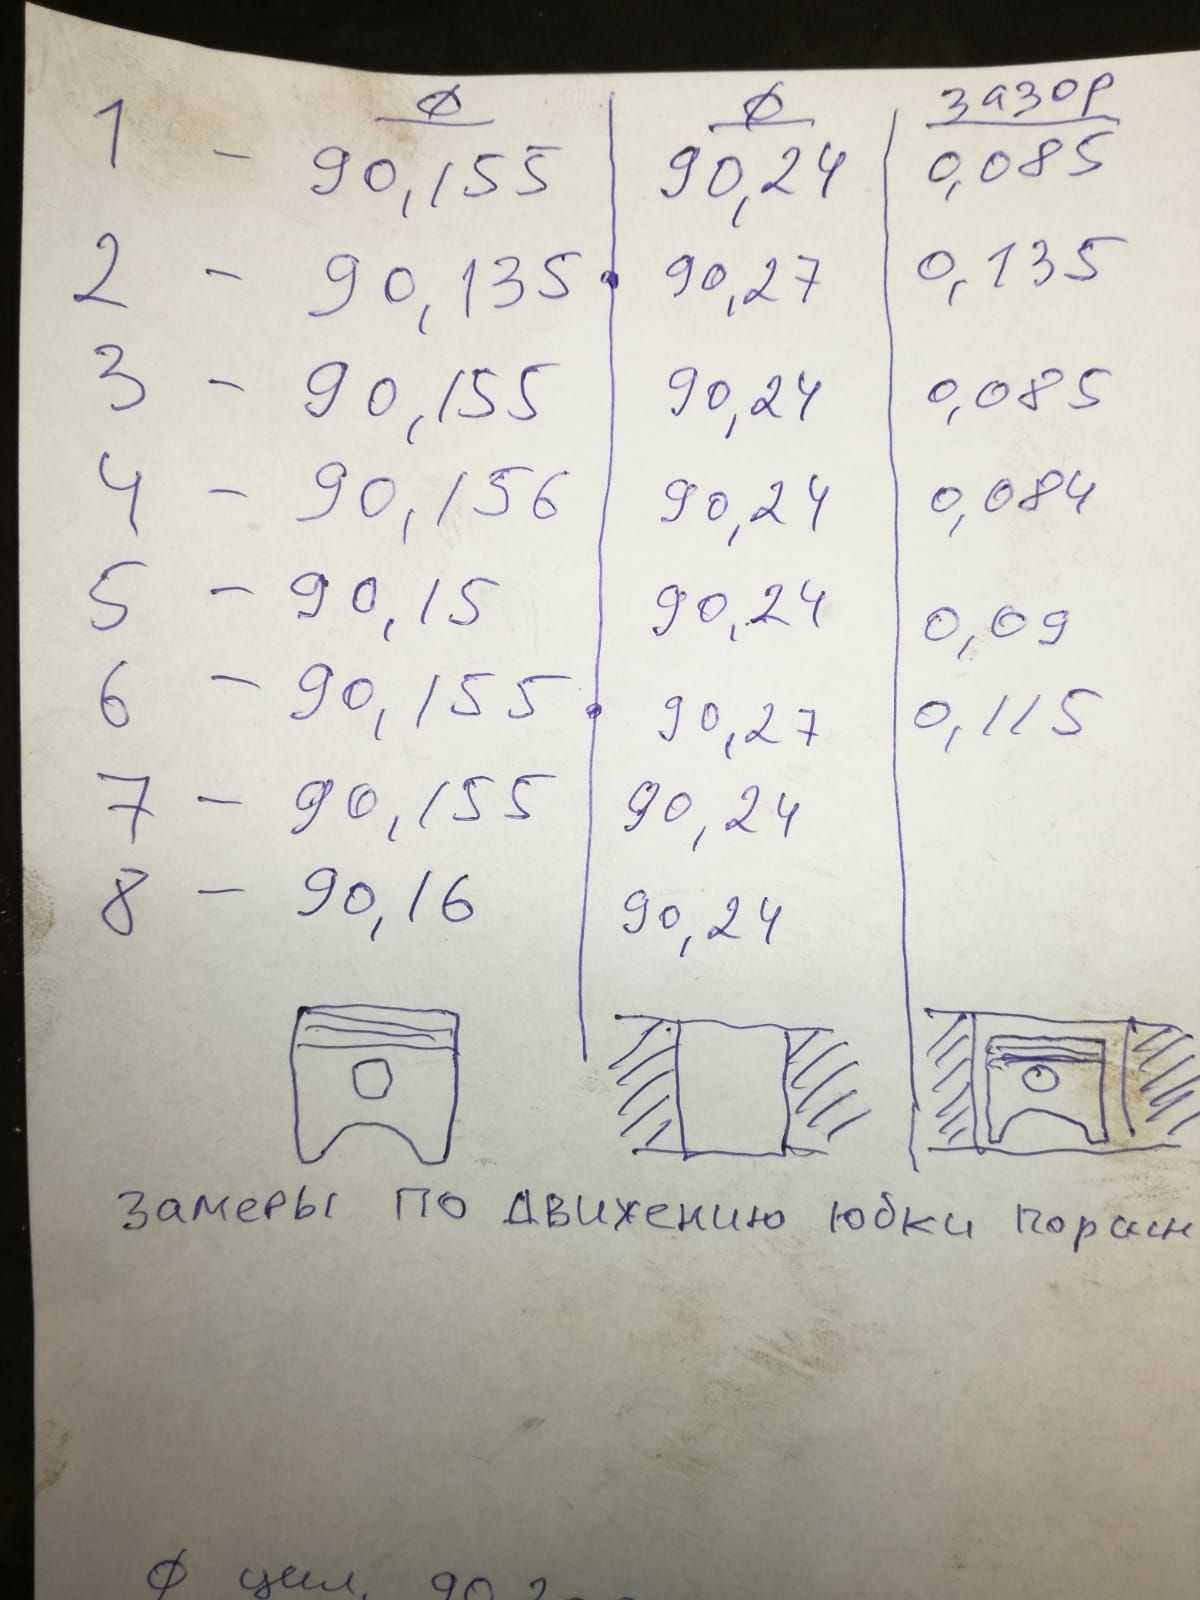 Ø Ø зазор
1 - 90,155 90,24 0,085
2 - 90,135 90,27 0,135
3 - 90,155 90,24 0,085
4 - 90,156 90,24 0,084
5 - 90,15 90,24 0,09
6 - 90,155 90,27 0,115
7 - 90,155 90,24
8 - 90,16 90,24
замеры по движению юбки
Ø цил.